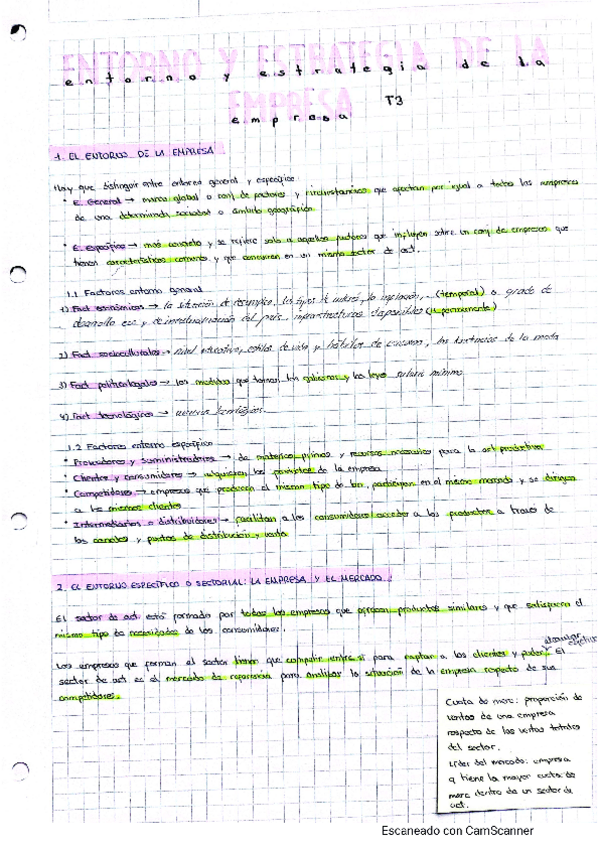 ENTORNO Y ESTRATEGIA DE LA
entorno y estrategia de la
EMPRESA T3
empresa
1. EL ENTORNO DE LA EMPRESA
Hay que distinguir entre entorno general y específico:
• E. General → marco global o conj. de factores y circunstancias que afectan por igual a todas las empresas
de una determinada sociedad o ámbito geográfico
• E. Específico → más concreto y se refiere solo a aquellos factores que influyen sobre un conj. de empresas que
tienen características comunes y que concurren en un mismo sector de act.
1.1 Factores entorno general
1) Fact económicos → la situación de desempleo, los tipos de interés, la inflación, ... (temporal) o grado de
desarrollo eco y de industrialización del país, infraestructuras disponibles (+ permanente)
2) Fact socioculturales → nivel educativo, estilos de vida y hábitos de consumo, las tendencias de la moda
3) Fact político-legales → las medidas que toman los gobiernos y las leyes salario mínimo
4) Fact tecnológicos → avances tecnológicos.
1.2 Factores entorno específico
• Proveedores y suministradores → de materias primas y recursos necesarios para la act productiva
• Clientes y consumidores → adquieren los productos de la empresa
• Competidores → empresas que producen el mismo tipo de bien, participan en el mismo mercado y se dirigen
a los mismos clientes
• Intermediarios o distribuidores → facilitan a los consumidores acceder a los productos a través de
los canales y puntos de distribución y venta
2. EL ENTORNO ESPECÍFICO O SECTORIAL: LA EMPRESA Y EL MERCADO
El sector de act. está formado por todas las empresas que ofrecen productos similares y que satisfacen el
mismo tipo de necesidades de los consumidores.
Las empresas que forman el sector tienen que competir entre sí para captar a los clientes y poder El
sector de act es el mercado de referencia para analizar la situación de la empresa respecto de sus
competidores.
Cuota de merc: proporción de
ventas de una empresa
respecto de las ventas totales
del sector.
Líder del mercado: empresa
q tiene la mayor cuota de
merc dentro de un sector de
act.
Escaneado con CamScanner